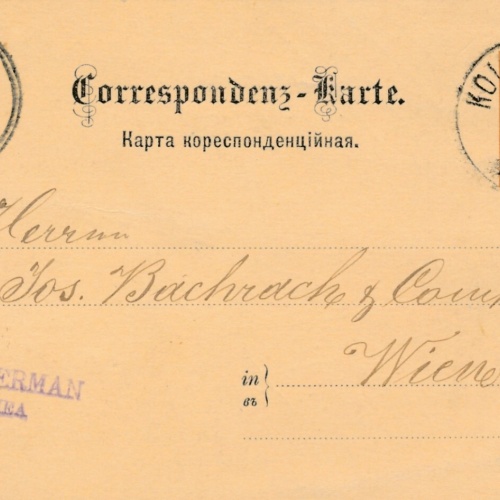 Correspondenz-Karte.
Карта кореспонденційная.
KOL
Herrn
Jos. Bachrach & Comp
Wien
ERMAN
in
въ